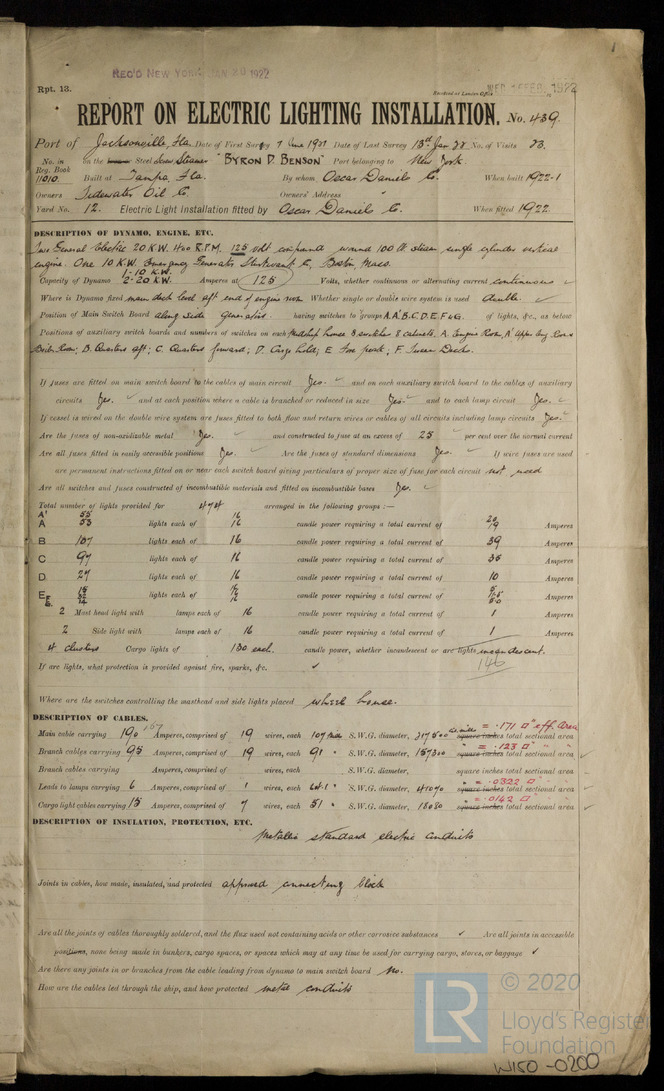 1
REC'D NEW YORK JAN 20 1922
Rpt. 13.
Received at London Office WED. 1 FEB. 1922
REPORT ON ELECTRIC LIGHTING INSTALLATION. No. 439.
Port of Jacksonville, Fla. Date of First Survey 7 June 1921 Date of Last Survey 13th Jan 22 No. of Visits 23.
No. in Reg. Book 11010. on the Steel Screw Steamer "BYRON D. BENSON" Port belonging to New York.
Built at Tampa, Fla. By whom Oscar Daniels Co. When built 1922-1
Owners Tidewater Oil Co. Owners' Address
Yard No. 12. Electric Light Installation fitted by Oscar Daniels Co. When fitted 1922.
DESCRIPTION OF DYNAMO, ENGINE, ETC.
Two General Electric 20 K.W. 400 R.P.M. 125 volt compound wound 100 lb steam, single cylinder vertical
engine. One 10 K.W. Emergency Generator Sturtevant Co, Boston, Mass.
Capacity of Dynamo 1-10 K.W. 2-20 K.W. Amperes at 125 Volts, whether continuous or alternating current continuous
Where is Dynamo fixed main deck level aft end of engine room Whether single or double wire system is used double.
Position of Main Switch Board along side generators. having switches to groups A.A'.B.C.D.E.F&G. of lights, &c., as below
Positions of auxiliary switch boards and numbers of switches on each wheel house 8 switches 8 cabinets. A. Engine Room, A' Upper Eng. Room &
Boiler Room; B. Quarters aft; C. Quarters forward; D. Cargo holds; E Fore peak; F. Tween Decks.
If fuses are fitted on main switch board to the cables of main circuit Yes. and on each auxiliary switch board to the cables of auxiliary
circuits Yes. and at each position where a cable is branched or reduced in size Yes. and to each lamp circuit Yes.
If vessel is wired on the double wire system are fuses fitted to both flow and return wires or cables of all circuits including lamp circuits Yes.
Are the fuses of non-oxidizable metal Yes. and constructed to fuse at an excess of 25 per cent over the normal current
Are all fuses fitted in easily accessible positions Yes. Are the fuses of standard dimensions Yes. If wire fuses are used
are permanent instructions fitted on or near each switch board giving particulars of proper size of fuse for each circuit not used
Are all switches and fuses constructed of incombustible materials and fitted on incombustible bases Yes.
Total number of lights provided for 474 arranged in the following groups :—
A' 55 16 20
A 53 lights each of 16 candle power requiring a total current of 19 Amperes
B 107 lights each of 16 candle power requiring a total current of 39 Amperes
C 97 lights each of 16 candle power requiring a total current of 35 Amperes
D 27 lights each of 16 candle power requiring a total current of 10 Amperes
E 15 lights each of 16 candle power requiring a total current of Amperes
2 Mast head light with lamps each of 16 candle power requiring a total current of 1 Amperes
2 Side light with lamps each of 16 candle power requiring a total current of 1 Amperes
4 clusters Cargo lights of 130 each. candle power, whether incandescent or arc lights incandescent.
146
If arc lights, what protection is provided against fire, sparks, &c.
Where are the switches controlling the masthead and side lights placed wheel house.
DESCRIPTION OF CABLES.
Main cable carrying 190 Amperes, comprised of 19 wires, each 107 mils S.W.G. diameter, 217500 square inches total sectional area = .171 □" eff. area
Branch cables carrying 95 Amperes, comprised of 19 wires, each 91 " S.W.G. diameter, 157300 square inches total sectional area = .123 □" " "
Branch cables carrying Amperes, comprised of wires, each S.W.G. diameter, square inches total sectional area
Leads to lamps carrying 6 Amperes, comprised of 1 wires, each 64.1 " S.W.G. diameter, 41070 square inches total sectional area = .0322 □" " "
Cargo light cables carrying 15 Amperes, comprised of 7 wires, each 51 " S.W.G. diameter, 18080 square inches total sectional area = .0142 □" " "
DESCRIPTION OF INSULATION, PROTECTION, ETC.
Metallic standard electric conduits
Joints in cables, how made, insulated, and protected approved connecting block
Are all the joints of cables thoroughly soldered, and the flux used not containing acids or other corrosive substances Are all joints in accessible
positions, none being made in bunkers, cargo spaces, or spaces which may at any time be used for carrying cargo, stores, or baggage
Are there any joints in or branches from the cable leading from dynamo to main switch board No.
How are the cables led through the ship, and how protected metal conduits
LR © 2020
Lloyd's Register
Foundation
W150-0200